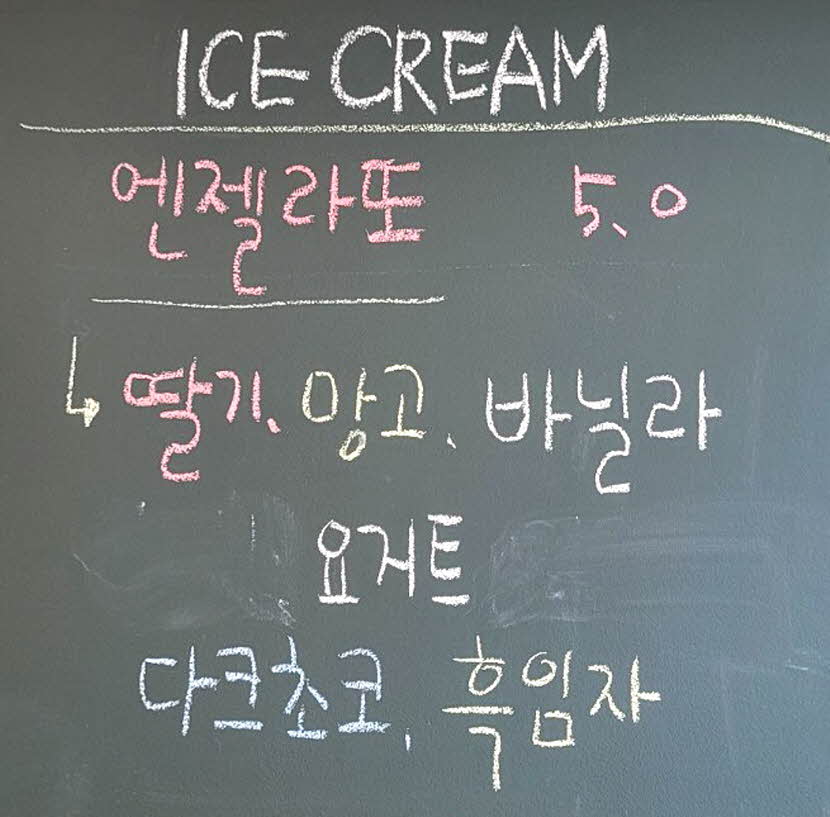 ICE CREAM
엔젤라또 5.0
↳ 딸기, 망고, 바닐라
요거트
다크초코, 흑임자